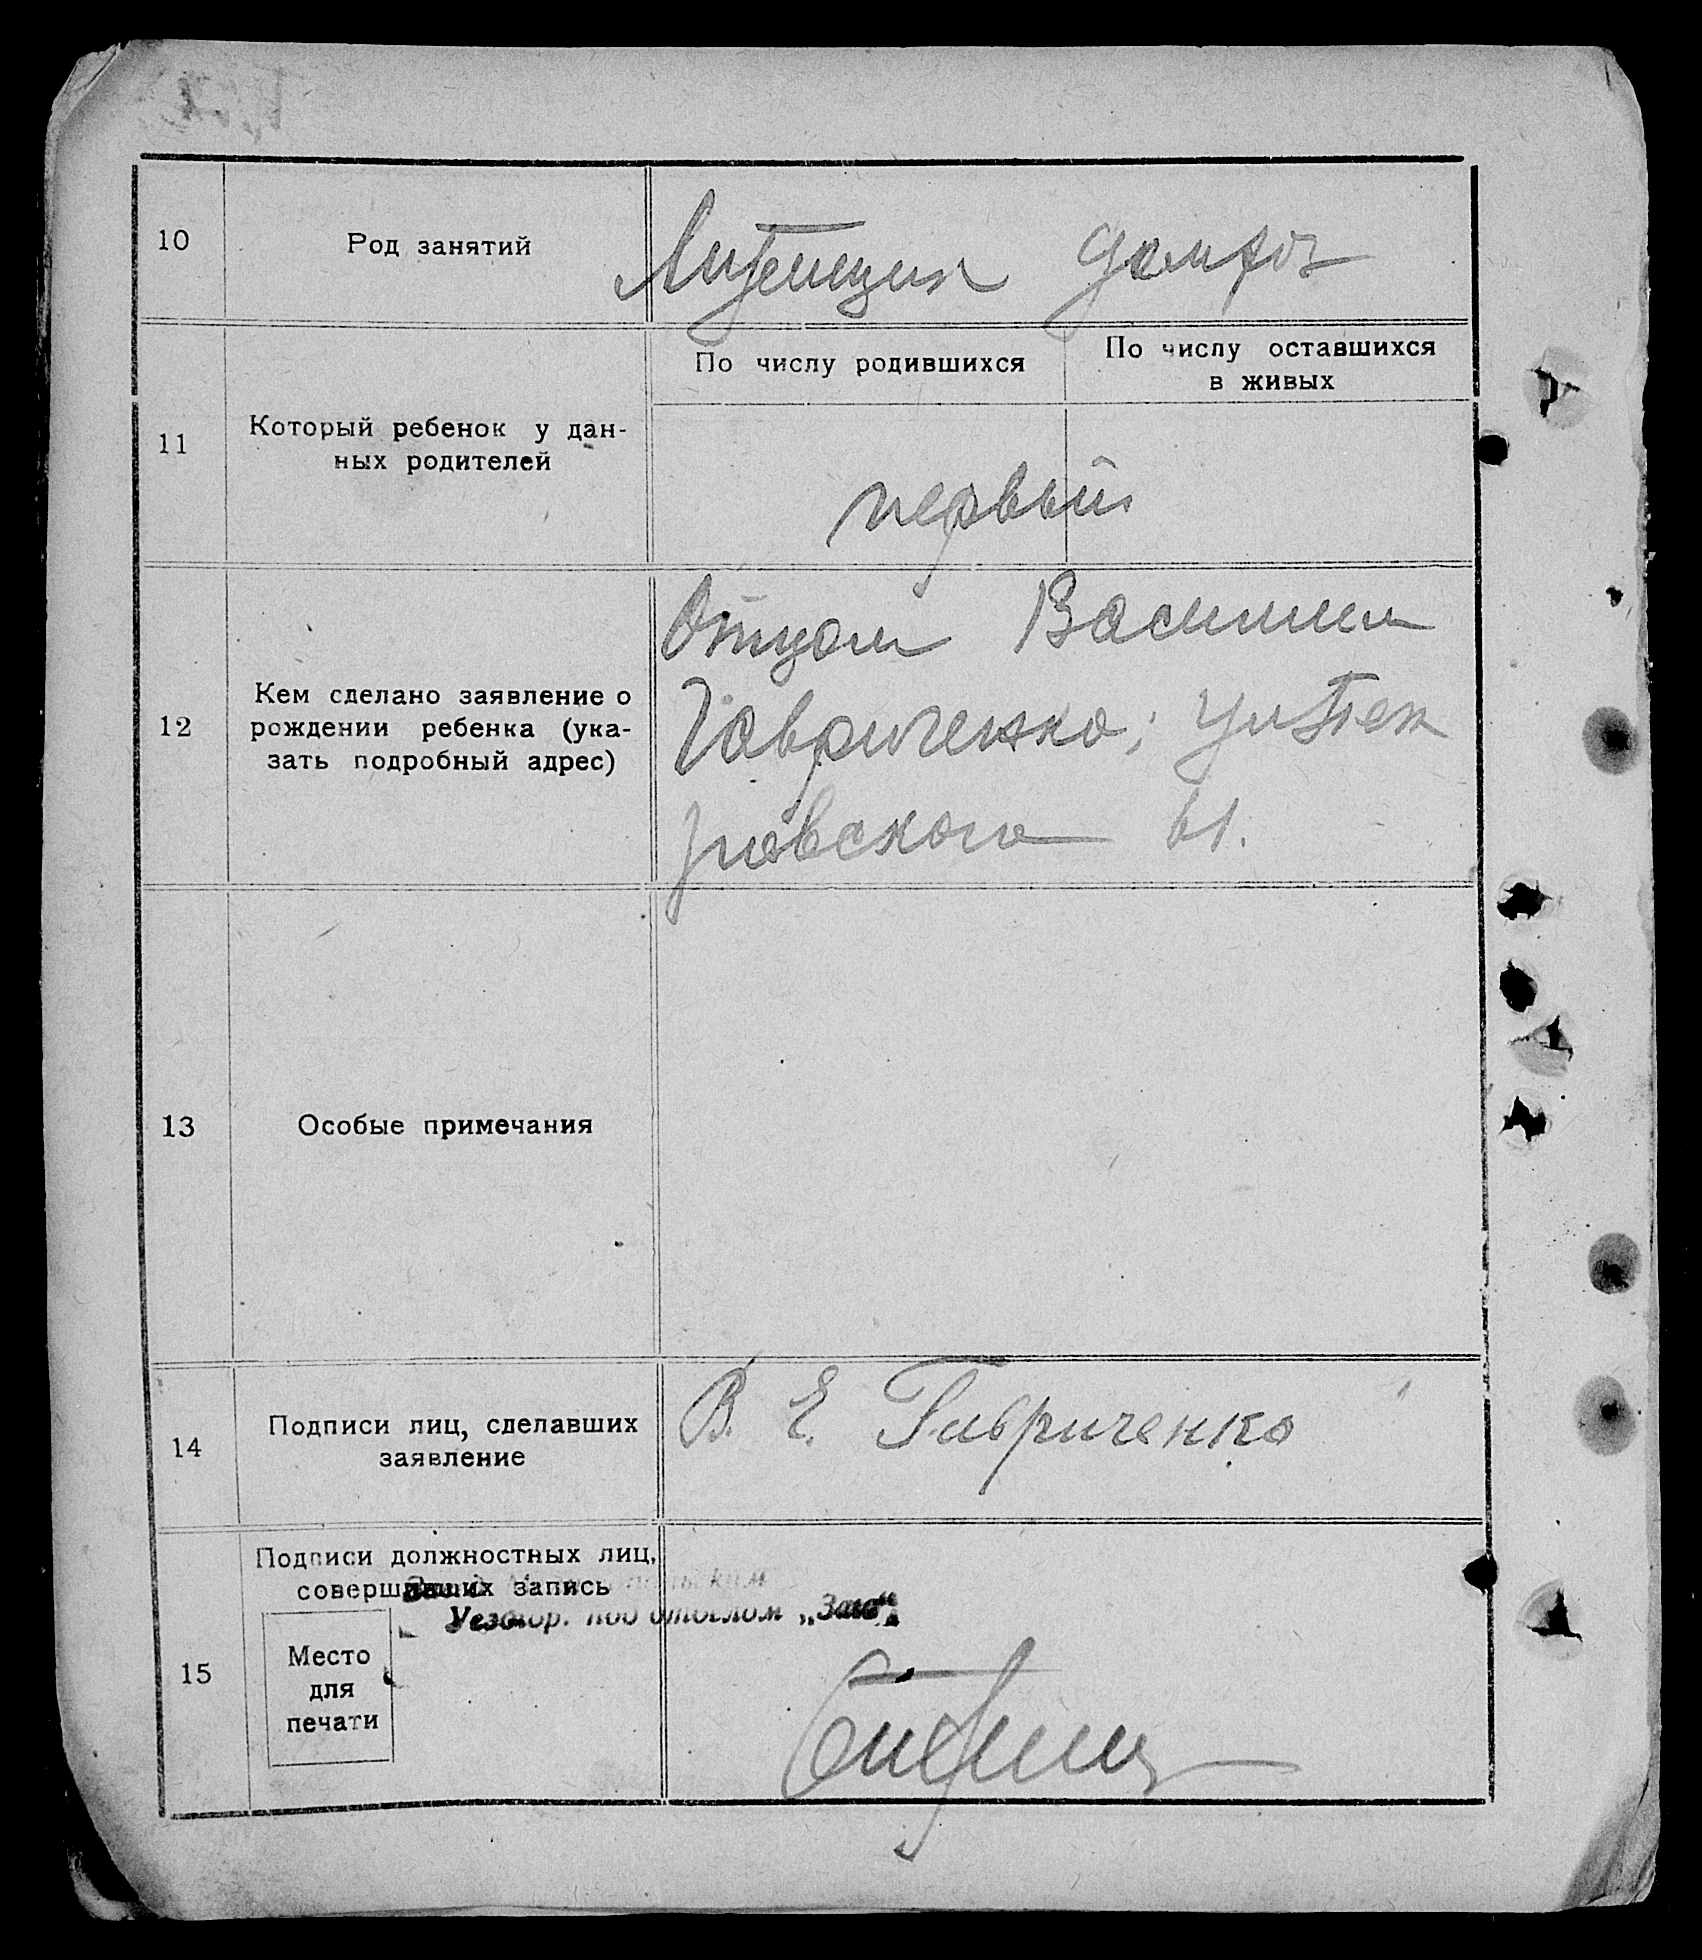 10
Род занятий
Литейщик
11
Который ребенок у дан-
ных родителей
По числу родившихся
По числу оставшихся
в живых
первый
12
Кем сделано заявление о
рождении ребенка (ука-
зать подробный адрес)
Отцом Василием
Гавриченко;
61.
13
Особые примечания
14
Подписи лиц, сделавших
заявление
В. Е. Гавриченко
15
Подписи должностных лиц,
совершивших запись
под отделом „Загс“
Место
для
печати